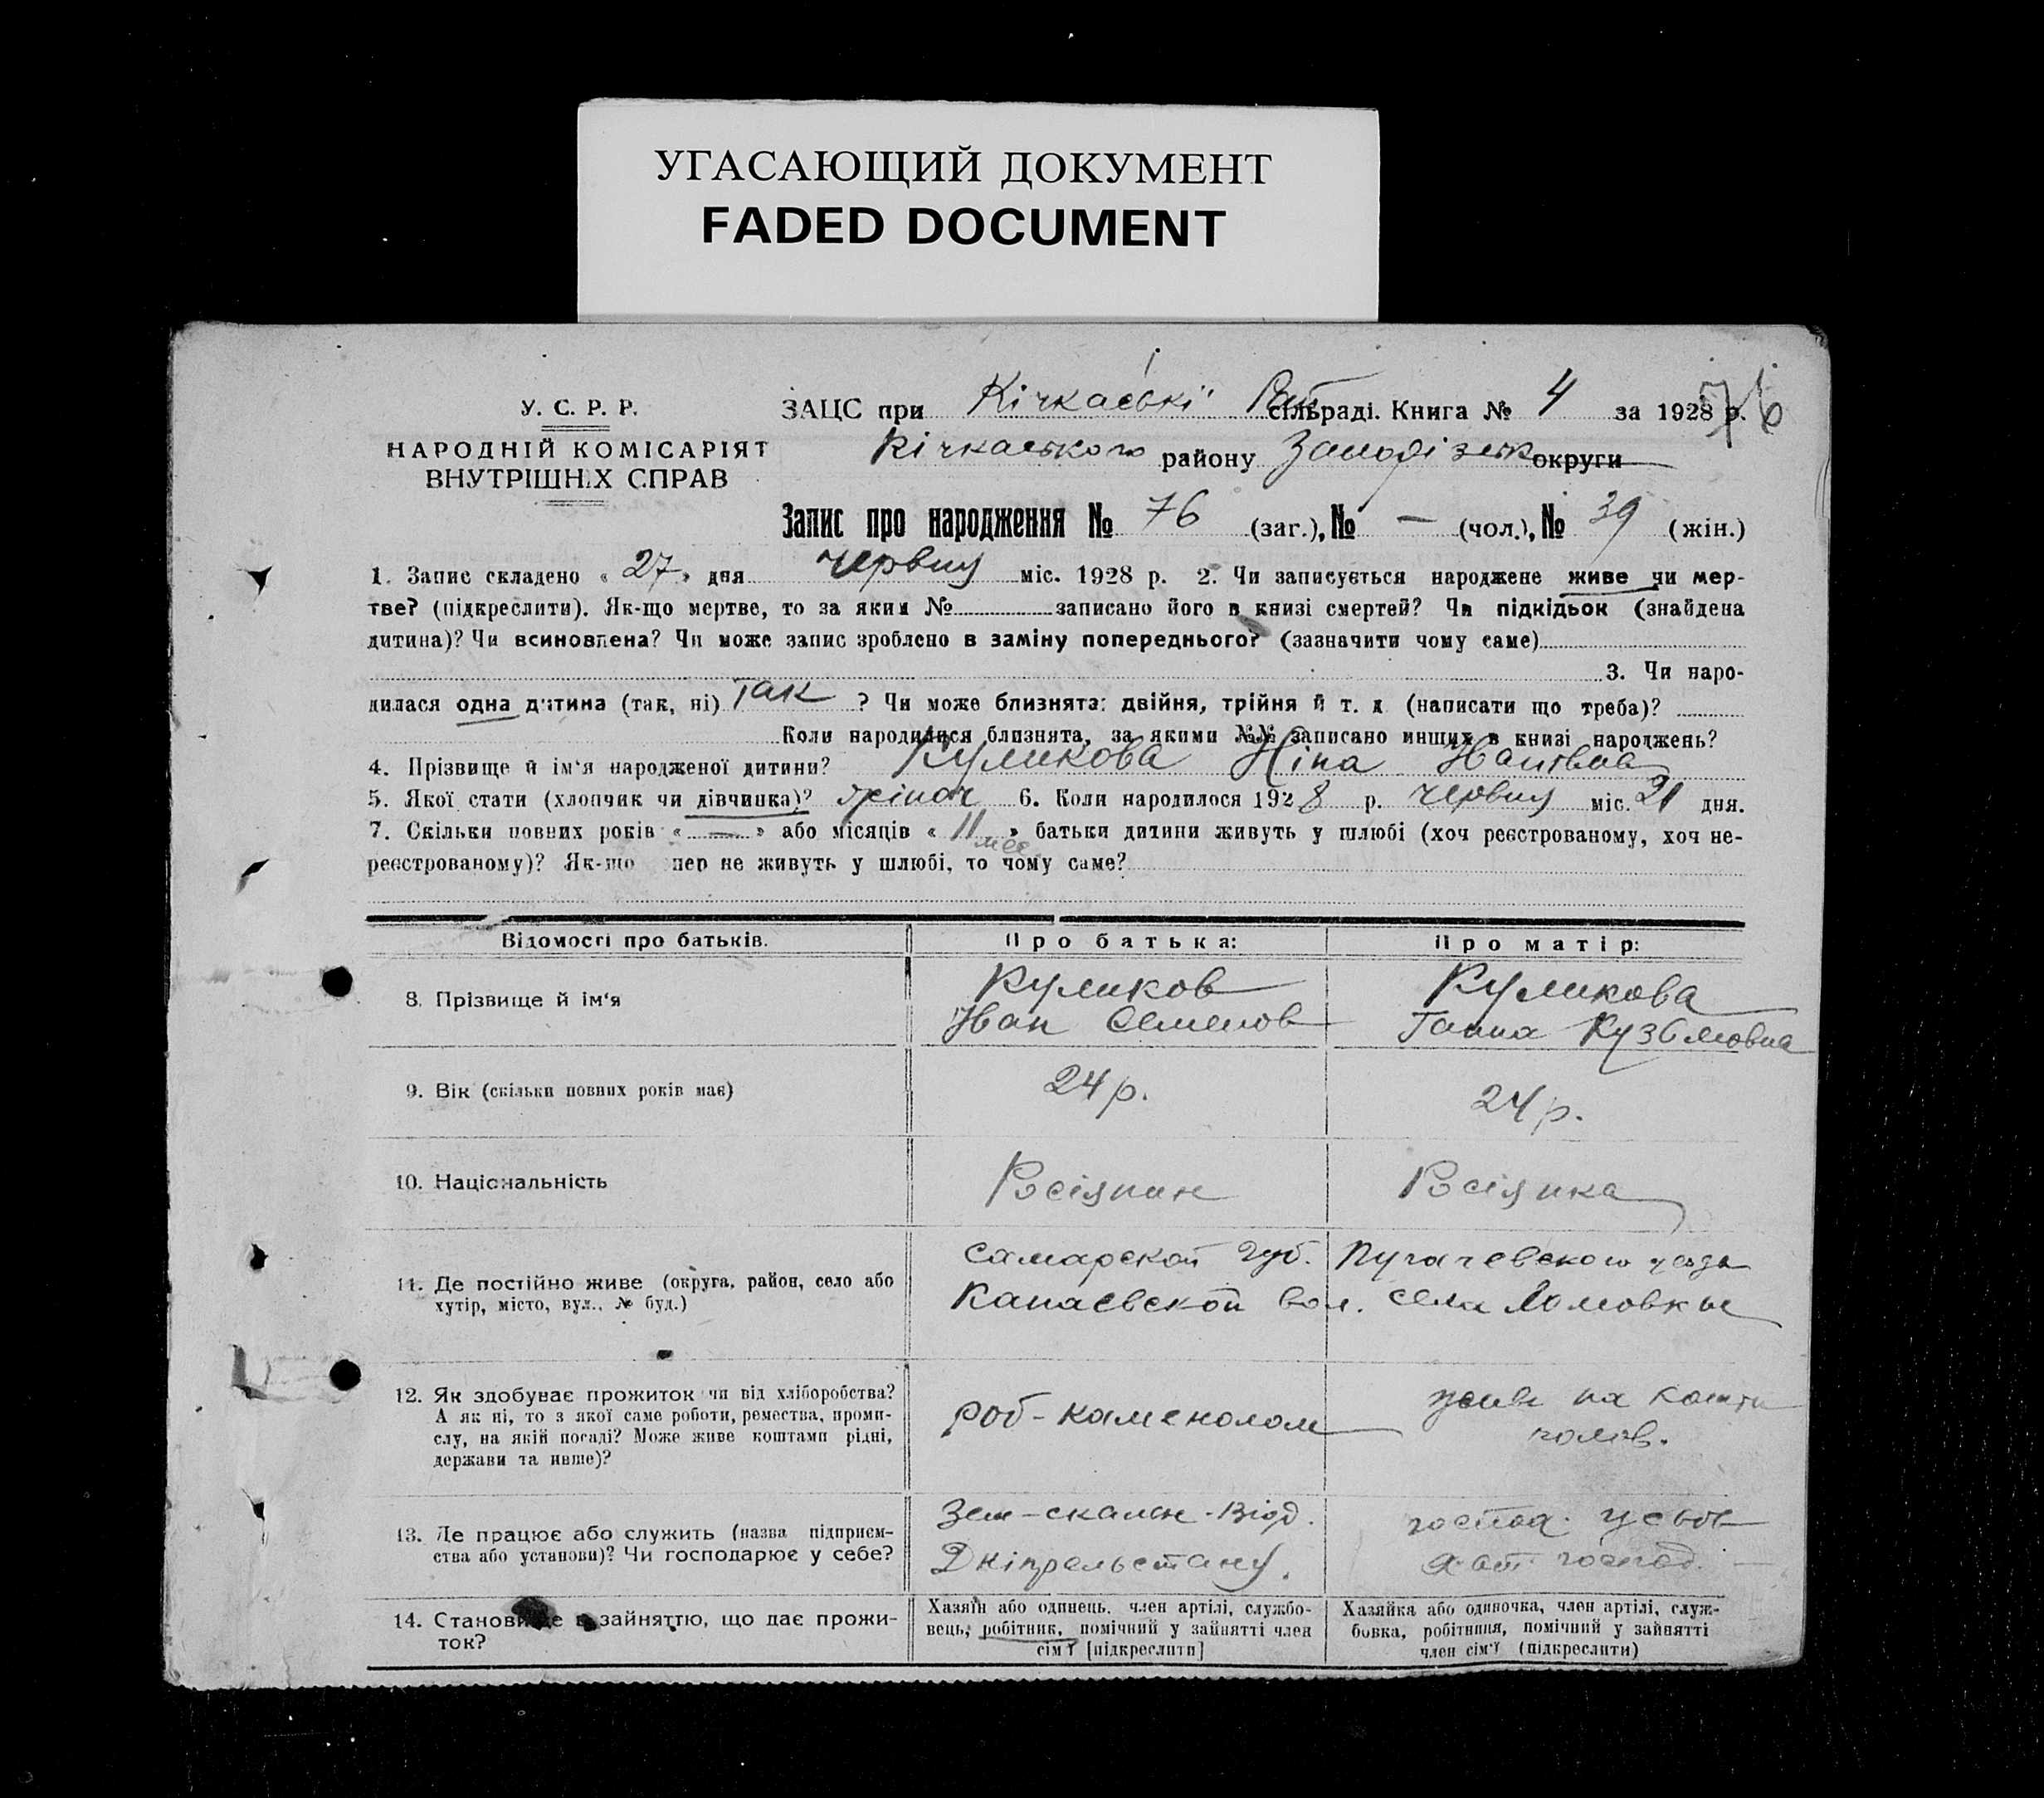 УГАСАЮЩИЙ ДОКУМЕНТ
FADED DOCUMENT
У. С. Р. Р.
НАРОДНІЙ КОМІСАРІЯТ
ВНУТРІШНІХ СПРАВ
ЗАЦС при Кічкаські сільраді. Книга № 4 за 1928 р.
76
Кічкаського району Запоріжськ округи
Запис про народження № 76 (заг.), № — (чол.), № 39 (жін.)
1. Запис складено « 27 » дня червня міс. 1928 р. 2. Чи записується народжене живе чи мер-
тве? (підкреслити). Як-що мертве, то за яким № записано його в книзі смертей? Чи підкідьок (знайдена
дитина)? Чи всиновлена? Чи може запис зроблено в заміну попереднього? (зазначити чому саме)
3. Чи наро-
дилася одна дитина (так, ні) так ? Чи може близнята: двійня, трійня й т. д (написати що треба)?
Коли народилися близнята, за якими №№ записано инших в книзі народжень?
4. Прізвище й ім'я народженої дитини? Куликова Ніна Іванівна
5. Якої стати (хлопчик чи дівчинка)? жіноч 6. Коли народилося 1928 р. червня міс. 21 дня.
7. Скільки повних років « — » або місяців « 11 » батьки дитини живуть у шлюбі (хоч реєстрованому, хоч не-
мес
реєстрованому)? Як-що пер не живуть у шлюбі, то чому саме?
Відомості про батьків.
Про батька:
Про матір:
8. Прізвище й ім'я
Куликов
Іван Семенов
Куликова
Ганна Кузьмовна
9. Вік (скільки повних років має)
24 р.
24 р.
10. Національність
Росіянин
Росіянка
11. Де постійно живе (округа, район, село або
хутір, місто, вул., № буд.)
Самарской губ. Пугачевского уезда
Канаевской вол. села Ломовки
12. Як здобуває прожиток чи від хліборобства?
А як ні, то з якої саме роботи, ремества, проми-
слу, на якій посаді? Може живе коштами рідні,
держави та инше)?
роб-каменолом
живе на кошти
чолов.
13. Де працює або служить (назва підприєм-
ства або установи)? Чи господарює у себе?
Зем-скальн-Відд.
Дніпрельстану.
господ.
14. Становище в зайняттю, що дає прожи-
ток?
Хазяїн або одинець, член артілі, службо-
вець, робітник, помічний у зайнятті член
сім'ї [підкреслити]
Хазяйка або одиночка, член артілі, служ-
бовка, робітниця, помічний у зайнятті
член сім'ї (підкреслити)